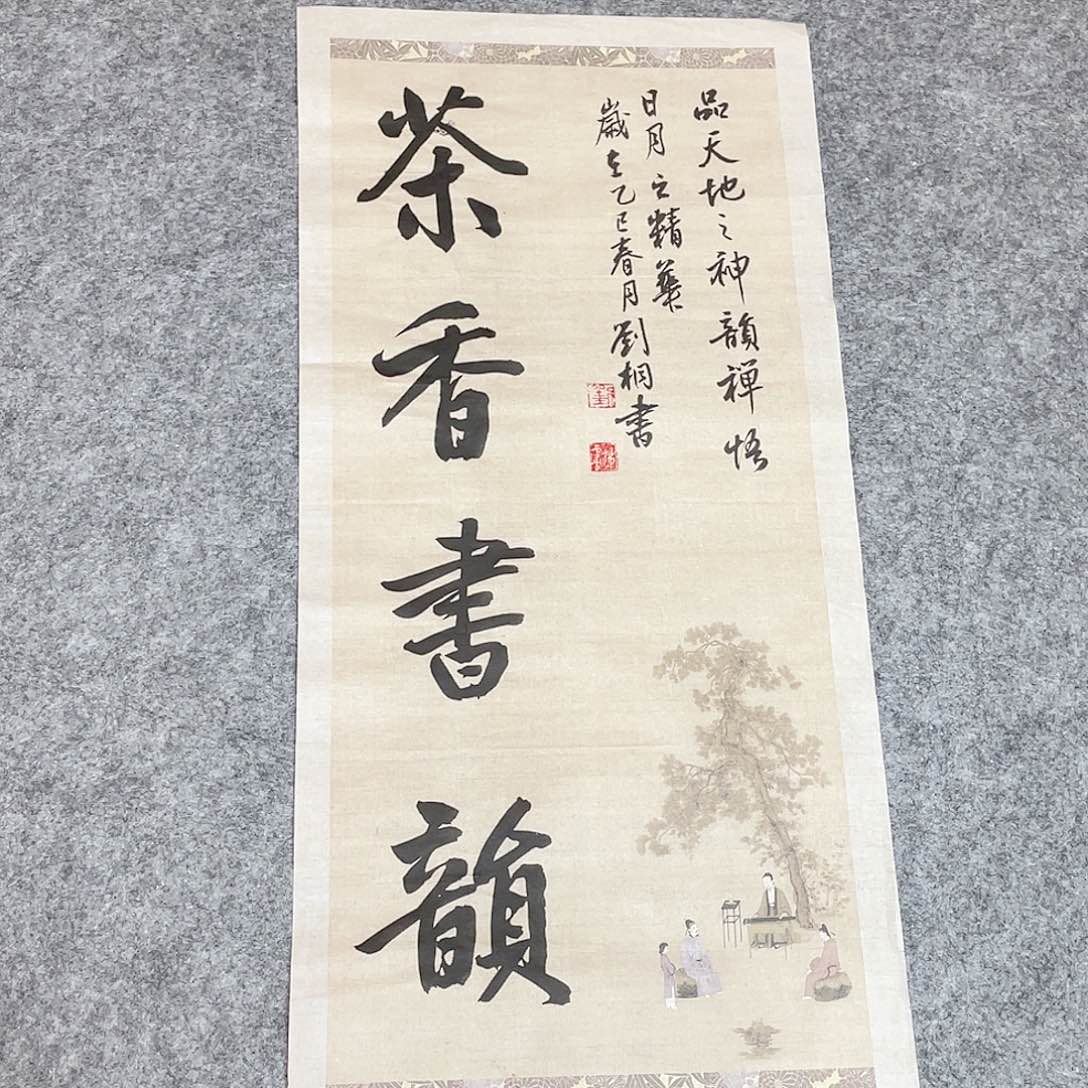 品天地之神韻禅悟
日月之精華
歲在乙巳春月劉桐書
茶香書韻